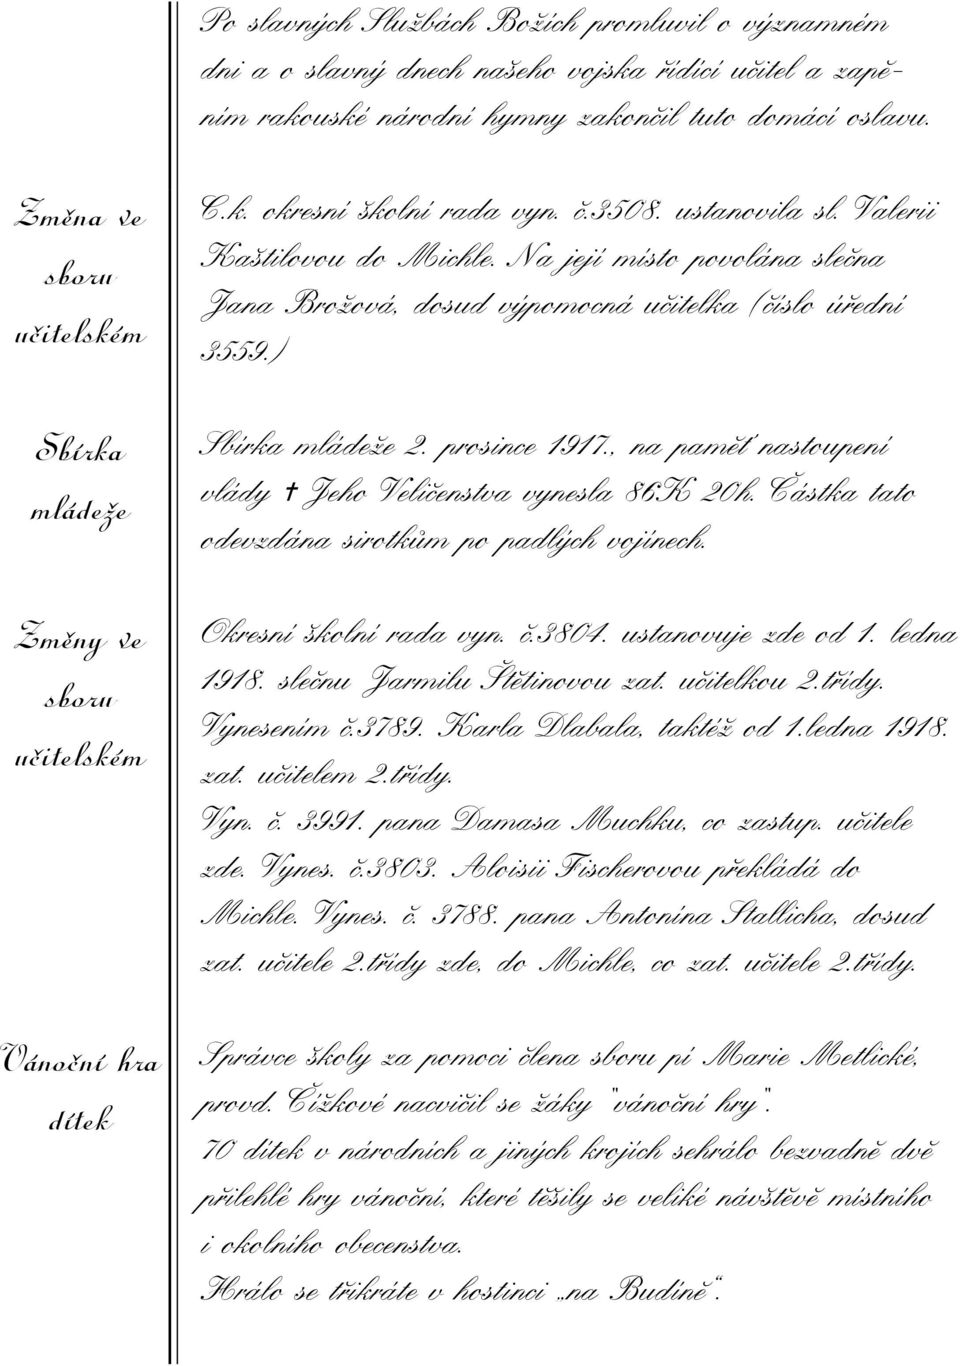 Po slavných Službách Božích promluvil o významném
dni a o slavný dnech našeho vojska řídící učitel a zapě-
ním rakouské národní hymny zakončil tuto domácí oslavu.
Změna ve
sboru
učitelském
C.k. okresní školní rada vyn. č.3508. ustanovila sl. Valerii
Kaštilovou do Michle. Na její místo povolána slečna
Jana Brožová, dosud výpomocná učitelka (číslo úřední
3559.)
Sbírka
mládeže
Sbírka mládeže 2. prosince 1917., na paměť nastoupení
vlády ✝ Jeho Veličenstva vynesla 86K 20h. Částka tato
odevzdána sirotkům po padlých vojínech.
Změny ve
sboru
učitelském
Okresní školní rada vyn. č.3804. ustanovuje zde od 1. ledna
1918. slečnu Jarmilu Štětinovou zat. učitelkou 2.třídy.
Vynesením č.3789. Karla Dlabala, taktéž od 1.ledna 1918.
zat. učitelem 2.třídy.
Vyn. č. 3991. pana Damasa Muchku, co zastup. učitele
zde. Vynes. č.3803. Aloisii Fischerovou překládá do
Michle. Vynes. č. 3788. pana Antonína Stallicha, dosud
zat. učitele 2.třídy zde, do Michle, co zat. učitele 2.třídy.
Vánoční hra
dítek
Správce školy za pomoci člena sboru pí Marie Metlické,
provd. Čížkové nacvičil se žáky "vánoční hry".
70 dítek v národních a jiných krojích sehrálo bezvadně dvě
přilehlé hry vánoční, které těšily se veliké návštěvě místního
i okolního obecenstva.
Hrálo se třikráte v hostinci „na Budíně“.